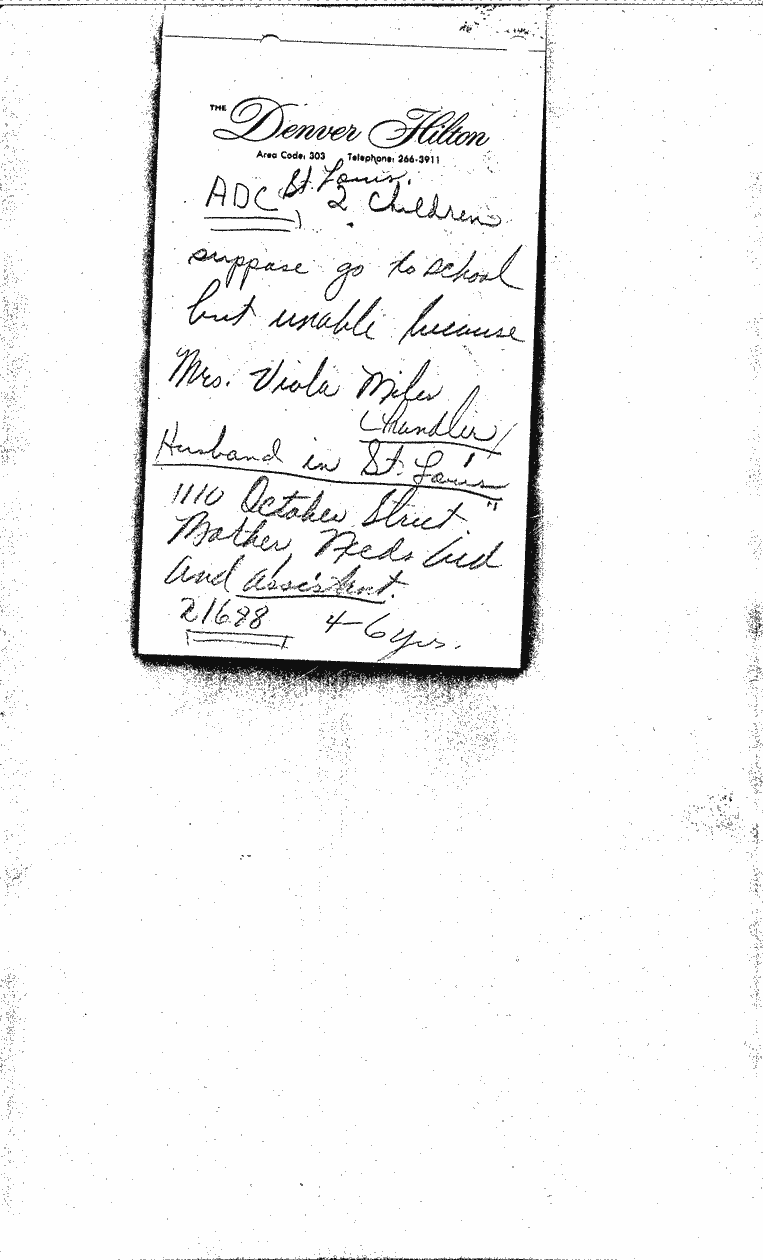 THE Denver Hilton
Area Code: 303 Telephone: 266-3911
St. Louis.
ADC 2 Children
suppose go to school
but unable because
Mrs. Viola Miles
Chandler
Husband in St. Louis
1110 October Street
Mother Needs Aid
and assistent.
21688 4-6 yrs.